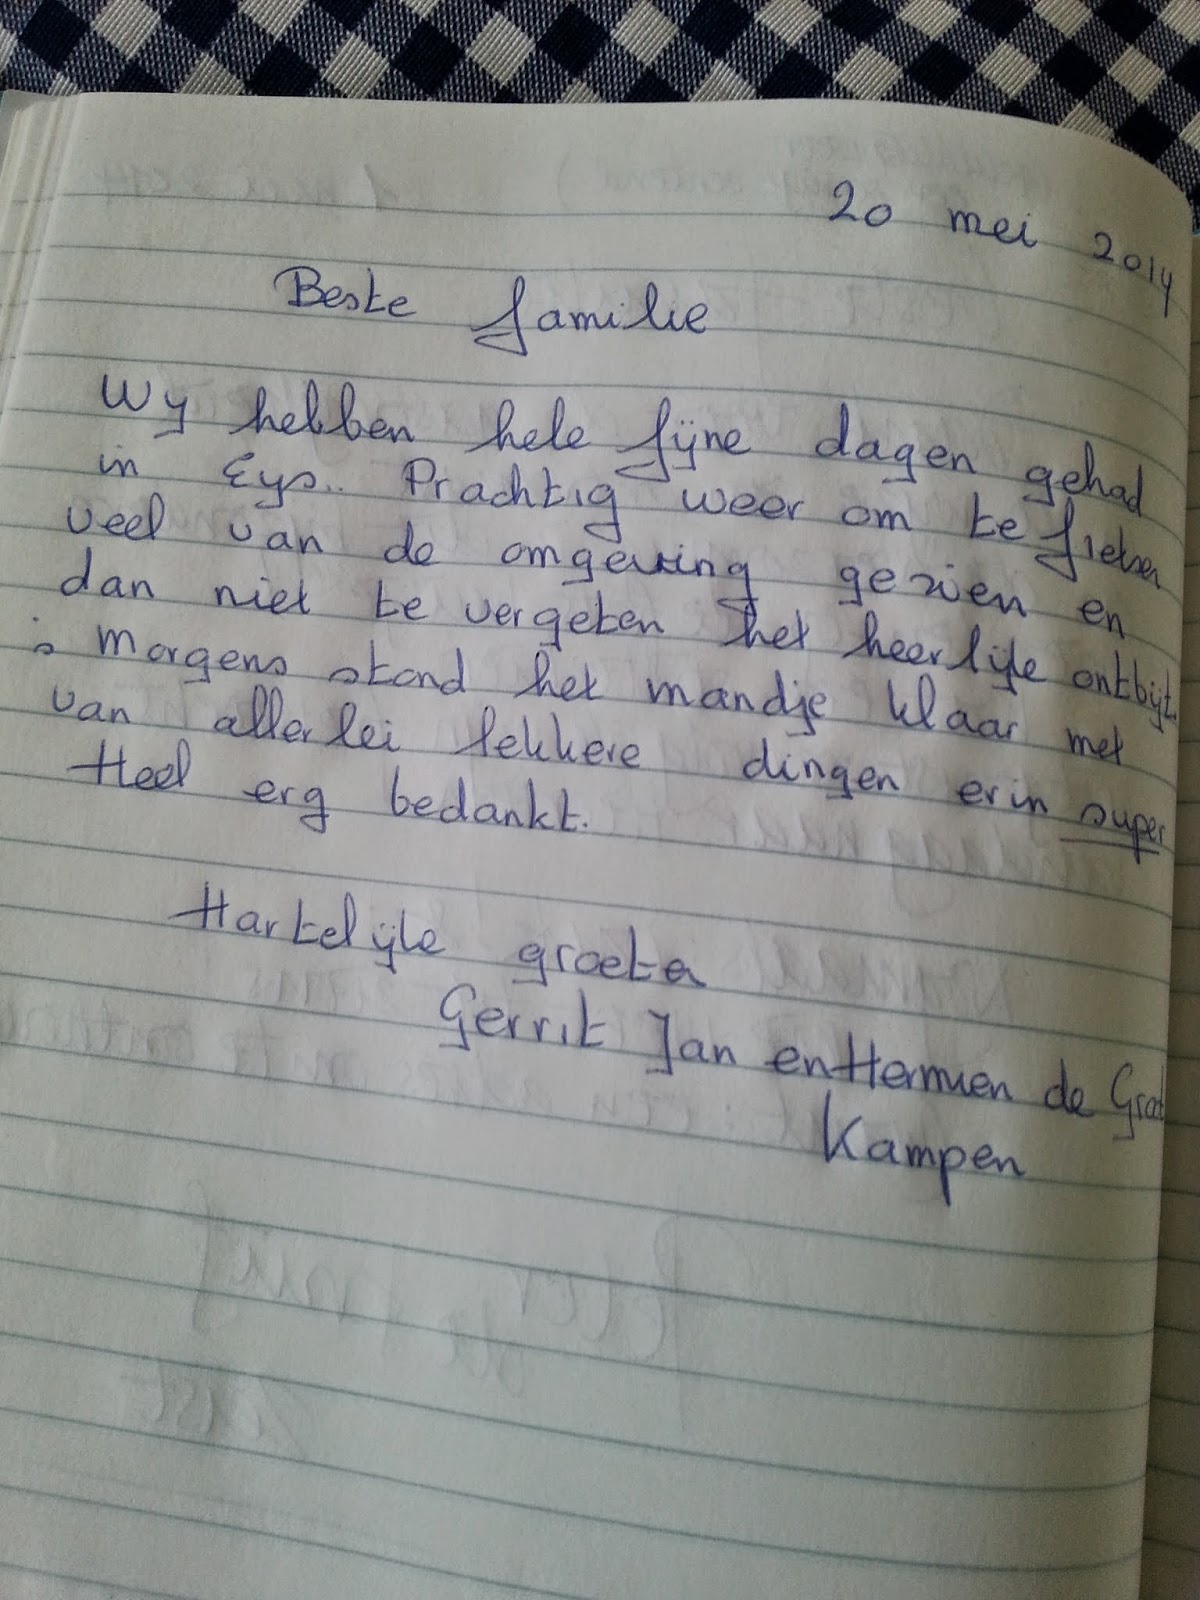 20 mei 2014
Beste familie
Wij hebben hele fijne dagen gehad
in Eys.. Prachtig weer om te fietsen
veel van de omgeving gezien en
dan niet te vergeten het heerlijke ontbijt.
's morgens stond het mandje klaar met
van allerlei lekkere dingen erin super
Heel erg bedankt.
Hartelijke groeten
Gerrit Jan en Hermien de Groot
Kampen